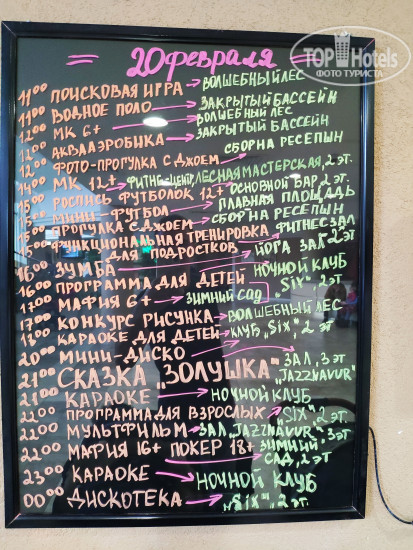 TOPHotels
ФОТО ТУРИСТА
= 20 февраля =
11⁰⁰ ПОИСКОВАЯ ИГРА → ВОЛШЕБНЫЙ ЛЕС
11⁰⁰ ВОДНОЕ ПОЛО → ЗАКРЫТЫЙ БАССЕЙН
12⁰⁰ МК 6+ → ВОЛШЕБНЫЙ ЛЕС
12⁰⁰ АКВААЭРОБИКА → ЗАКРЫТЫЙ БАССЕЙН
12⁰⁰ ФОТО-ПРОГУЛКА С ДЖОЕМ СБОР НА РЕСЕПЫН
14⁰⁰ МК 12+ → ФИТНЕС-ЦЕНТР, ЛЕСНАЯ МАСТЕРСКАЯ, 2 ЭТ.
15⁰⁰ РОСПИСЬ ФУТБОЛОК 12+ ОСНОВНОЙ БАР, 2 ЭТ.
15⁰⁰ МИНИ-ФУТБОЛ → ГЛАВНАЯ ПЛОЩАДЬ
15⁰⁰ ПРОГУЛКА С ДЖОЕМ → СБОР НА РЕСЕПЫН
15⁰⁰ ФУНКЦИОНАЛЬНАЯ ТРЕНИРОВКА ФИТНЕС ЗАЛ
ДЛЯ ПОДРОСТКОВ 2 ЭТ
16⁰⁰ ЗУМБА → ЙОГА ЗАЛ 2 ЭТ
16⁰⁰ ПРОГРАММА ДЛЯ ДЕТЕЙ НОЧНОЙ КЛУБ
17⁰⁰ МАФИЯ 6+ → ЗИМНИЙ САД, „SIX", 2 ЭТ
17⁰⁰ КОНКУРС РИСУНКА → ВОЛШЕБНЫЙ ЛЕС
18⁰⁰ КАРАОКЕ ДЛЯ ДЕТЕЙ → КЛУБ „SIX", 2 ЭТ
20⁰⁰ МИНИ-ДИСКО
21⁰⁰ СКАЗКА „ЗОЛУШКА" ЗАЛ, 3 ЭТ „JAZZNAVUR"
21⁰⁰ КАРАОКЕ → НОЧНОЙ КЛУБ
22⁰⁰ ПРОГРАММА ДЛЯ ВЗРОСЛЫХ → „SIX", 2 ЭТ.
22⁰⁰ МУЛЬТФИЛЬМ → ЗАЛ „JAZZNAVUR", 3 ЭТ
22⁰⁰ МАФИЯ 16+ ПОКЕР 18+ → ЗИМНИЙ САД, 2 ЭТ
23⁰⁰ КАРАОКЕ → НОЧНОЙ КЛУБ
00⁰⁰ ДИСКОТЕКА → „SIX", 2 ЭТ.